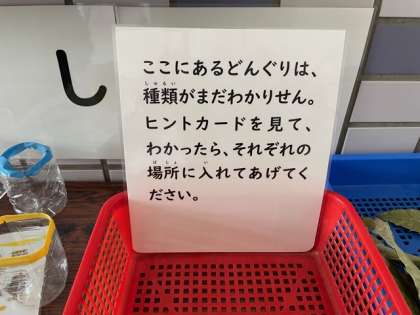 し
ここにあるどんぐりは、
しゅるい
種類がまだわかりせん。
ヒントカードを見て、
わかったら、それぞれの
ばしょ い
場所に入れてあげてく
ださい。